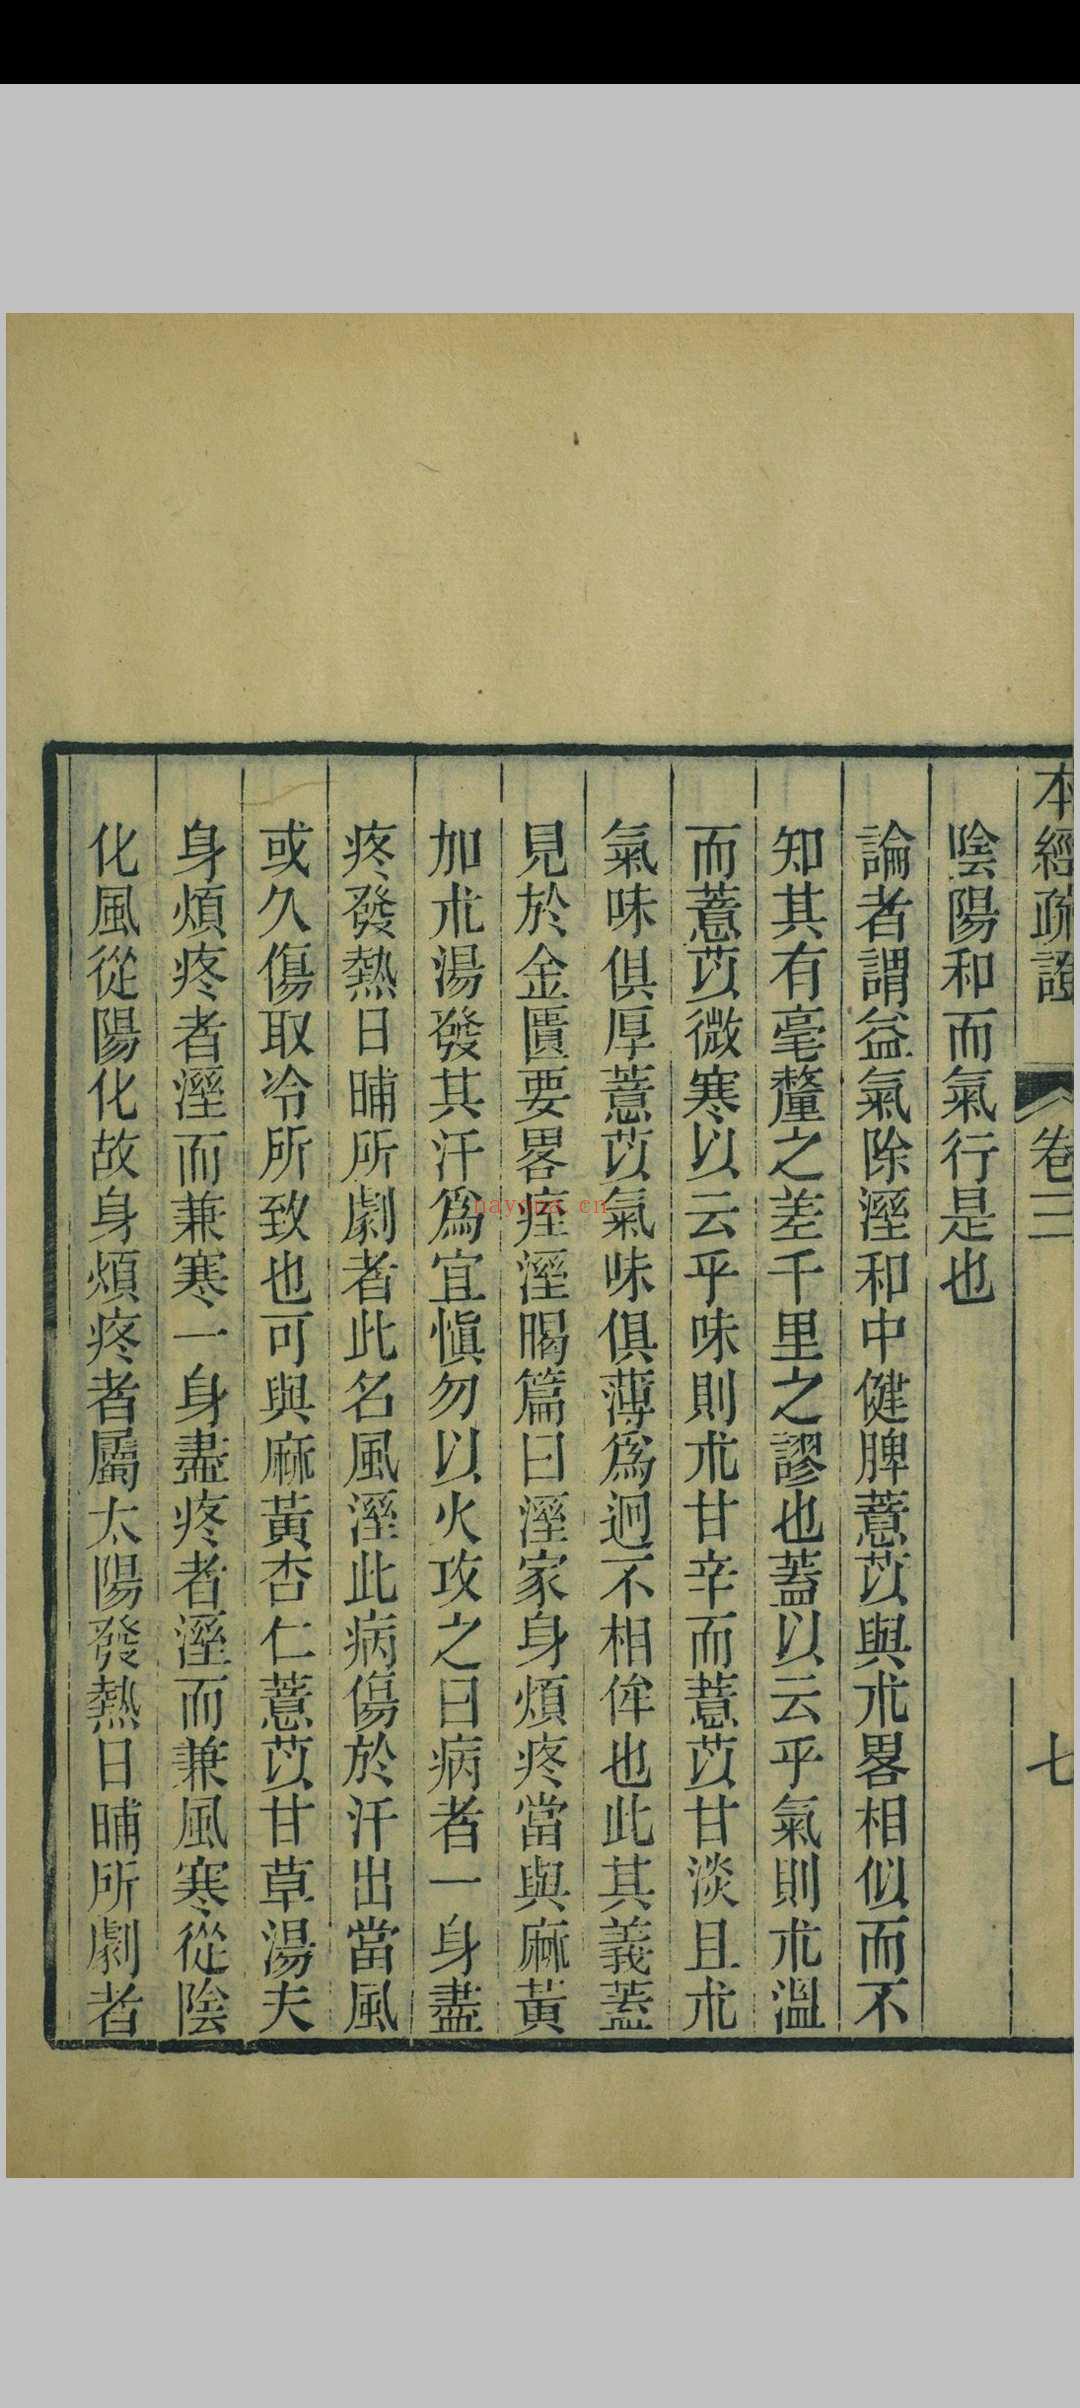 本經疏證 卷三 七
陰陽和而氣行是也
論者謂益氣除溼和中健脾薏苡與朮畧相似而不
知其有毫釐之差千里之謬也蓋以云乎氣則朮溫
而薏苡微寒以云乎味則朮甘辛而薏苡甘淡且朮
氣味俱厚薏苡氣味俱薄爲迥不相侔也此其義蓋
見於金匱要畧痓溼暍篇曰溼家身煩疼當與麻黃
加朮湯發其汗爲宜愼勿以火攻之曰病者一身盡
疼發熱日晡所劇者此名風溼此病傷於汗出當風
或久傷取冷所致也可與麻黃杏仁薏苡甘草湯夫
身煩疼者溼而兼寒一身盡疼者溼而兼風寒從陰
化風從陽化故身煩疼者屬太陽發熱日晡所劇者